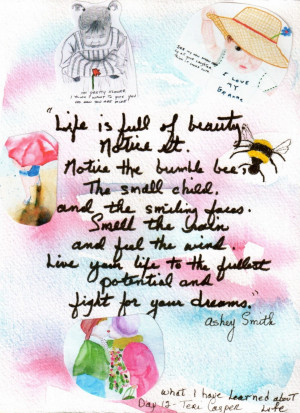 I LOVE
MY
"Life is full of beauty.
Notice it.
Notice the bumble bee.
The small child,
and the smiling faces.
Smell the rain
and feel the wind.
Live your life to the fullest
potential and
fight for your dreams."
Ashey Smith
What I have Learned about
Life
Day 12 - Teri Casper